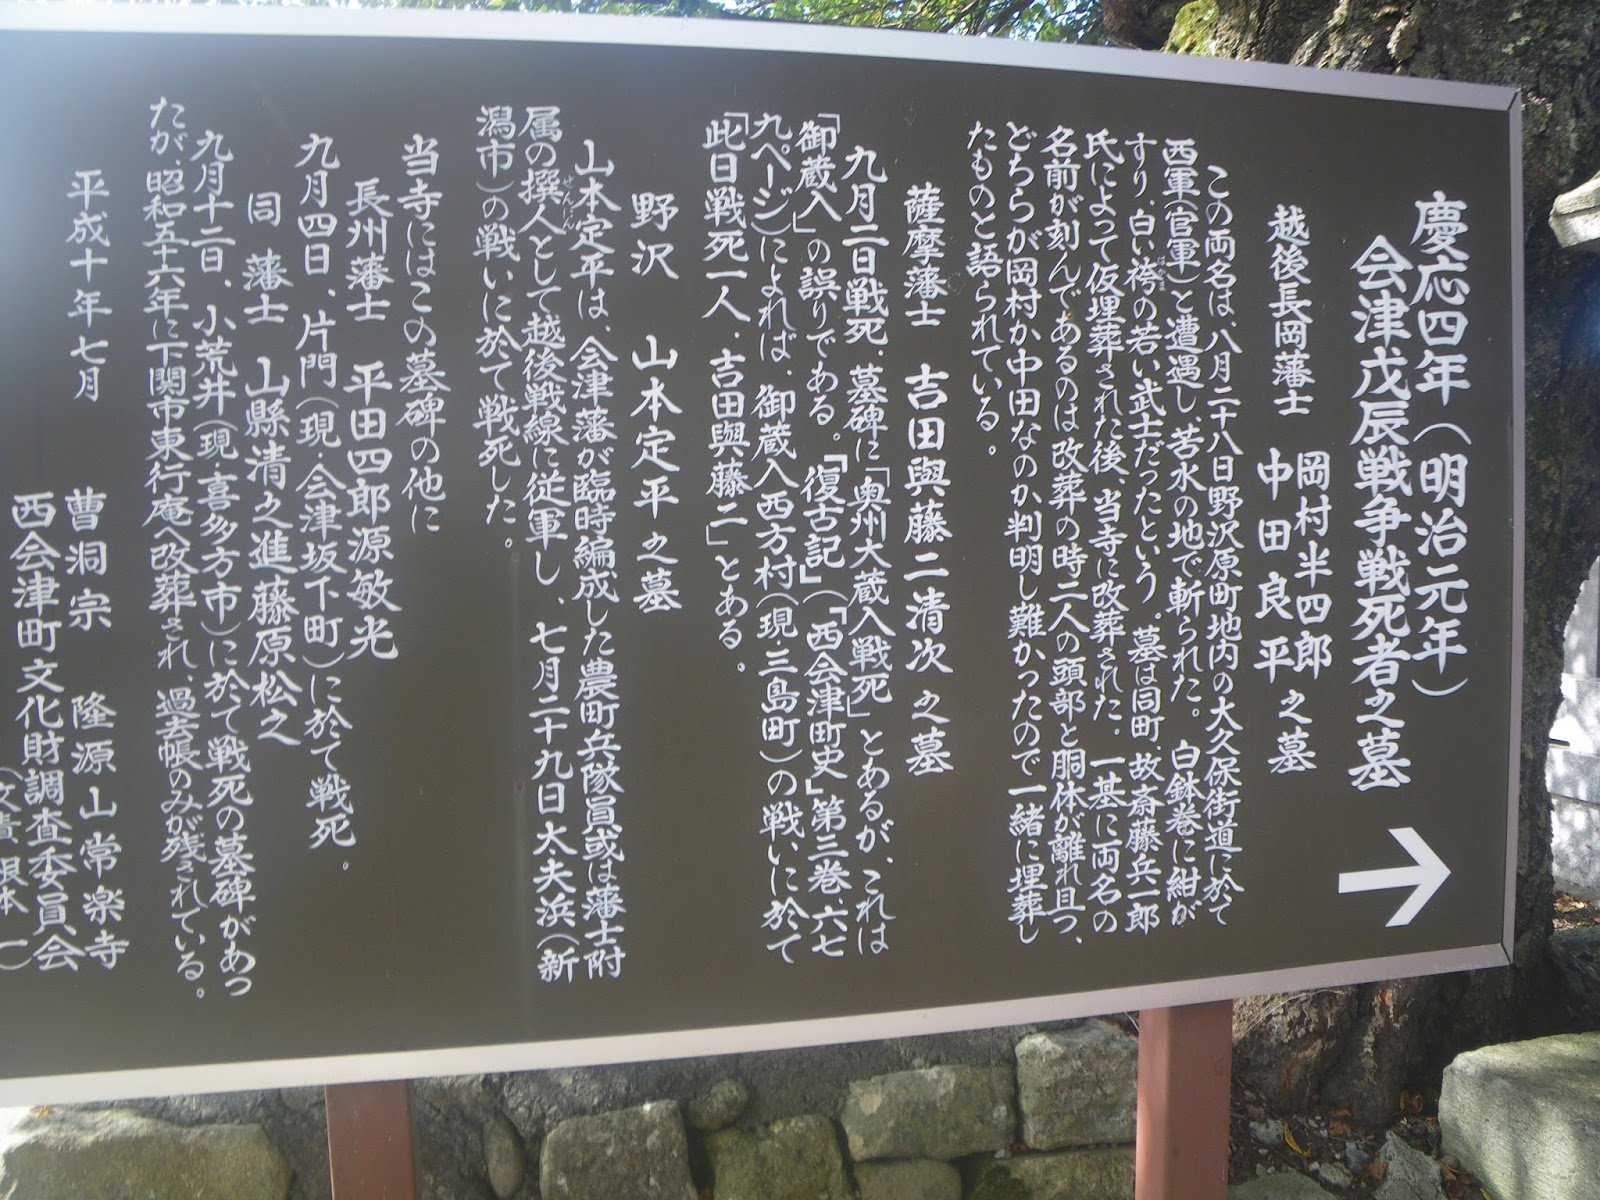 慶応四年(明治元年)
会津戊辰戦争戦死者之墓
越後長岡藩士 岡村半四郎
中田良平 之墓
この両名は、八月二十八日野沢原町地内の大久保街道に於て
西軍(官軍)と遭遇し、苦水の地で斬られた。白鉢巻に紺が
すり、白い袴の若い武士だったという。墓は同町、故斎藤兵一郎
氏によって仮埋葬された後、当寺に改葬された。一基に両名の
名前が刻んであるのは改葬の時二人の頭部と胴体が離れ且つ、
どちらが岡村か中田なのか判明し難かったので一緒に埋葬し
たものと語られている。
薩摩藩士 吉田與藤二清次之墓
九月二日戦死、墓碑に「奥州大蔵入戦死」とあるが、これは
「御蔵入」の誤りである。『復古記』(『西会津町史』第三巻、六七
九ページ)によれば、御蔵入西方村(現三島町)の戦いに於て
「此日戦死一人、吉田與藤二」とある。
野沢 山本定平之墓
山本定平は、会津藩が臨時編成した農町兵隊員或は藩士附
属の撰人として越後戦線に従軍し、七月二十九日大夫浜(新
せんにん
潟市)の戦いに於て戦死した。
当寺にはこの墓碑の他に
長州藩士 平田四郎源敏光
九月四日、片門(現・会津坂下町)に於て戦死。
同 藩士 山縣清之進藤原松之
九月十二日、小荒井(現・喜多方市)に於て戦死の墓碑があっ
たが、昭和五十六年に下関市東行庵へ改葬され、過去帳のみが残されている。
平成十年七月
曹洞宗 隆源山常楽寺
西会津町文化財調査委員会